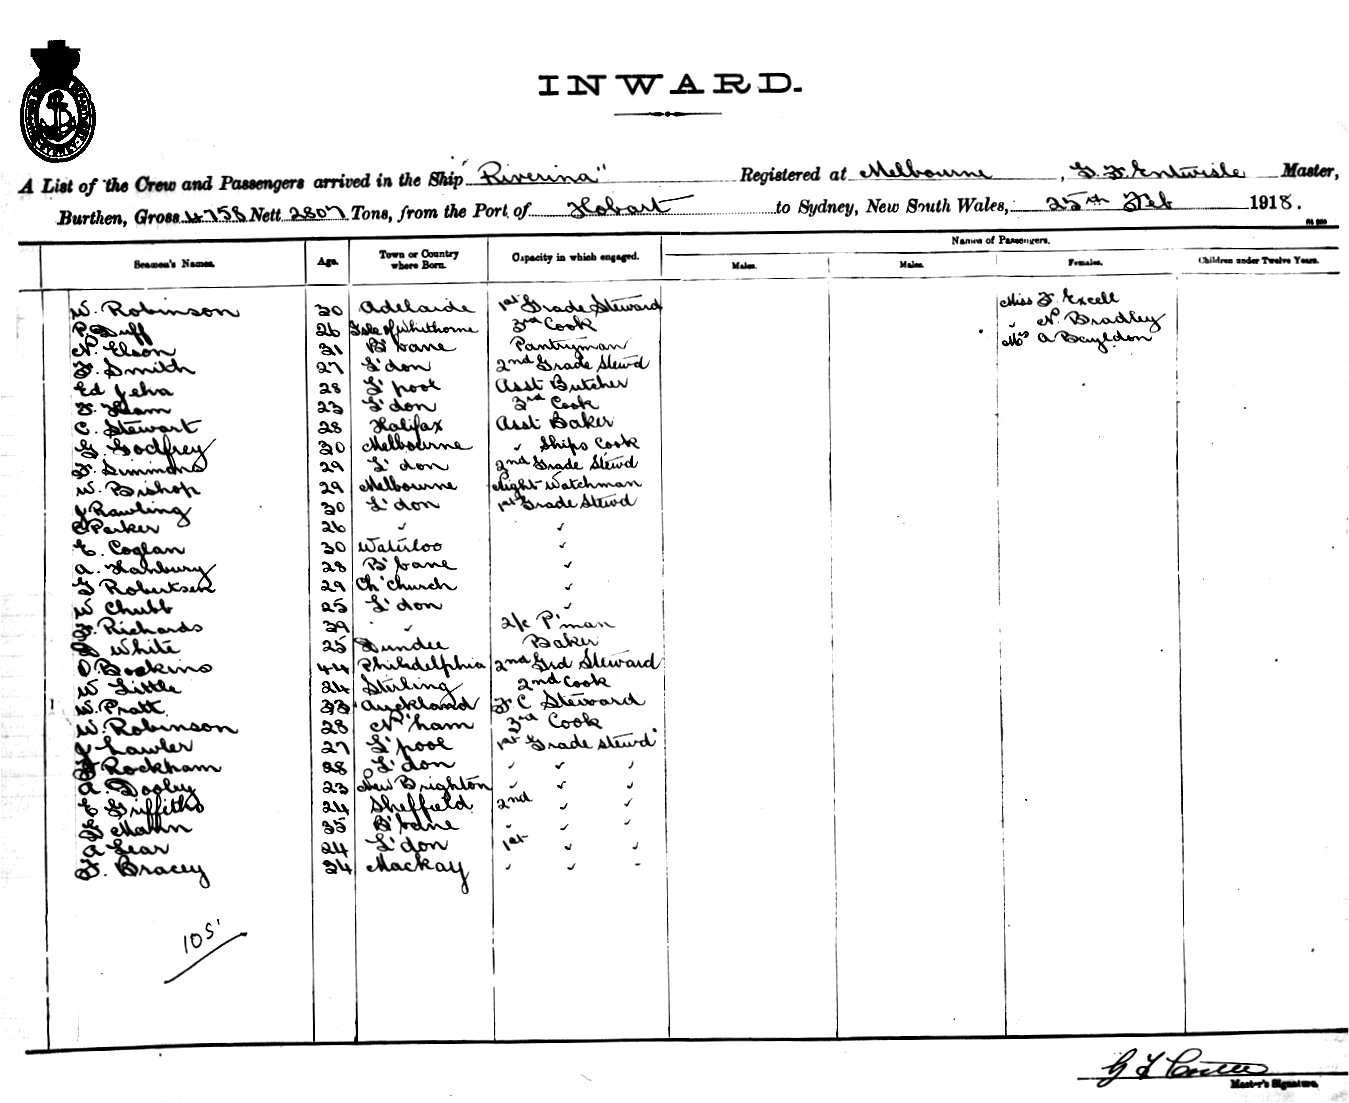 INWARD.
A List of the Crew and Passengers arrived in the Ship "Riverina" Registered at Melbourne, G. F. Entwisle Master,
Burthen, Gross 4758 Nett 2807 Tons, from the Port of Hobart to Sydney, New South Wales, 25th Feb 1918.
Names of Passengers.
Seamen's Names. Age. Town or Country where Born. Capacity in which engaged. Males. Males. Females. Children under Twelve Years.
W. Robinson 30 Adelaide 1st Grade Steward Miss F. Excell
P. Duff 26 Isle of Whithorne 3rd Cook " N. Bradley
N. Elson 31 B'bane Pantryman Mrs A Bayldon
F. Smith 27 L'don 2nd Grade Stewd
Ed Jeha 28 L'pool Asst Butcher
F. Ham 23 L'don 3rd Cook
C. Stewart 28 Halifax Asst Baker
G. Godfrey 30 Melbourne " Ships Cook
F. Simmons 29 L'don 2nd Grade Stewd
W. Bishop 29 Melbourne Night Watchman
J Rawling 30 L'don 1st Grade Stewd
C Parker 26 " "
E. Coglan 30 Waterloo "
A. Hanbury 28 B'bane "
G Robertson 29 Ch'church "
W Chubb 25 L'don "
F. Richards 39 " 2/c P'man
White 25 Dundee Baker
O Bockins 44 Philidelphia 2nd Grd Steward
W Little 24 Stirling 2nd Cook
W. Pratt 33 Auckland F. C Steward
W. Robinson 28 N'ham 3rd Cook
J Lawler 27 L'pool 1st Grade Stewd
Rockham 28 L'don " " "
A. Dooley 23 New Brighton " " "
E Griffiths 24 Sheffield 2nd " "
Mahn 35 B'bane " " "
A Lear 24 L'don 1st " "
F. Bracey 34 Mackay " " "
105
G F
Master's Signature.